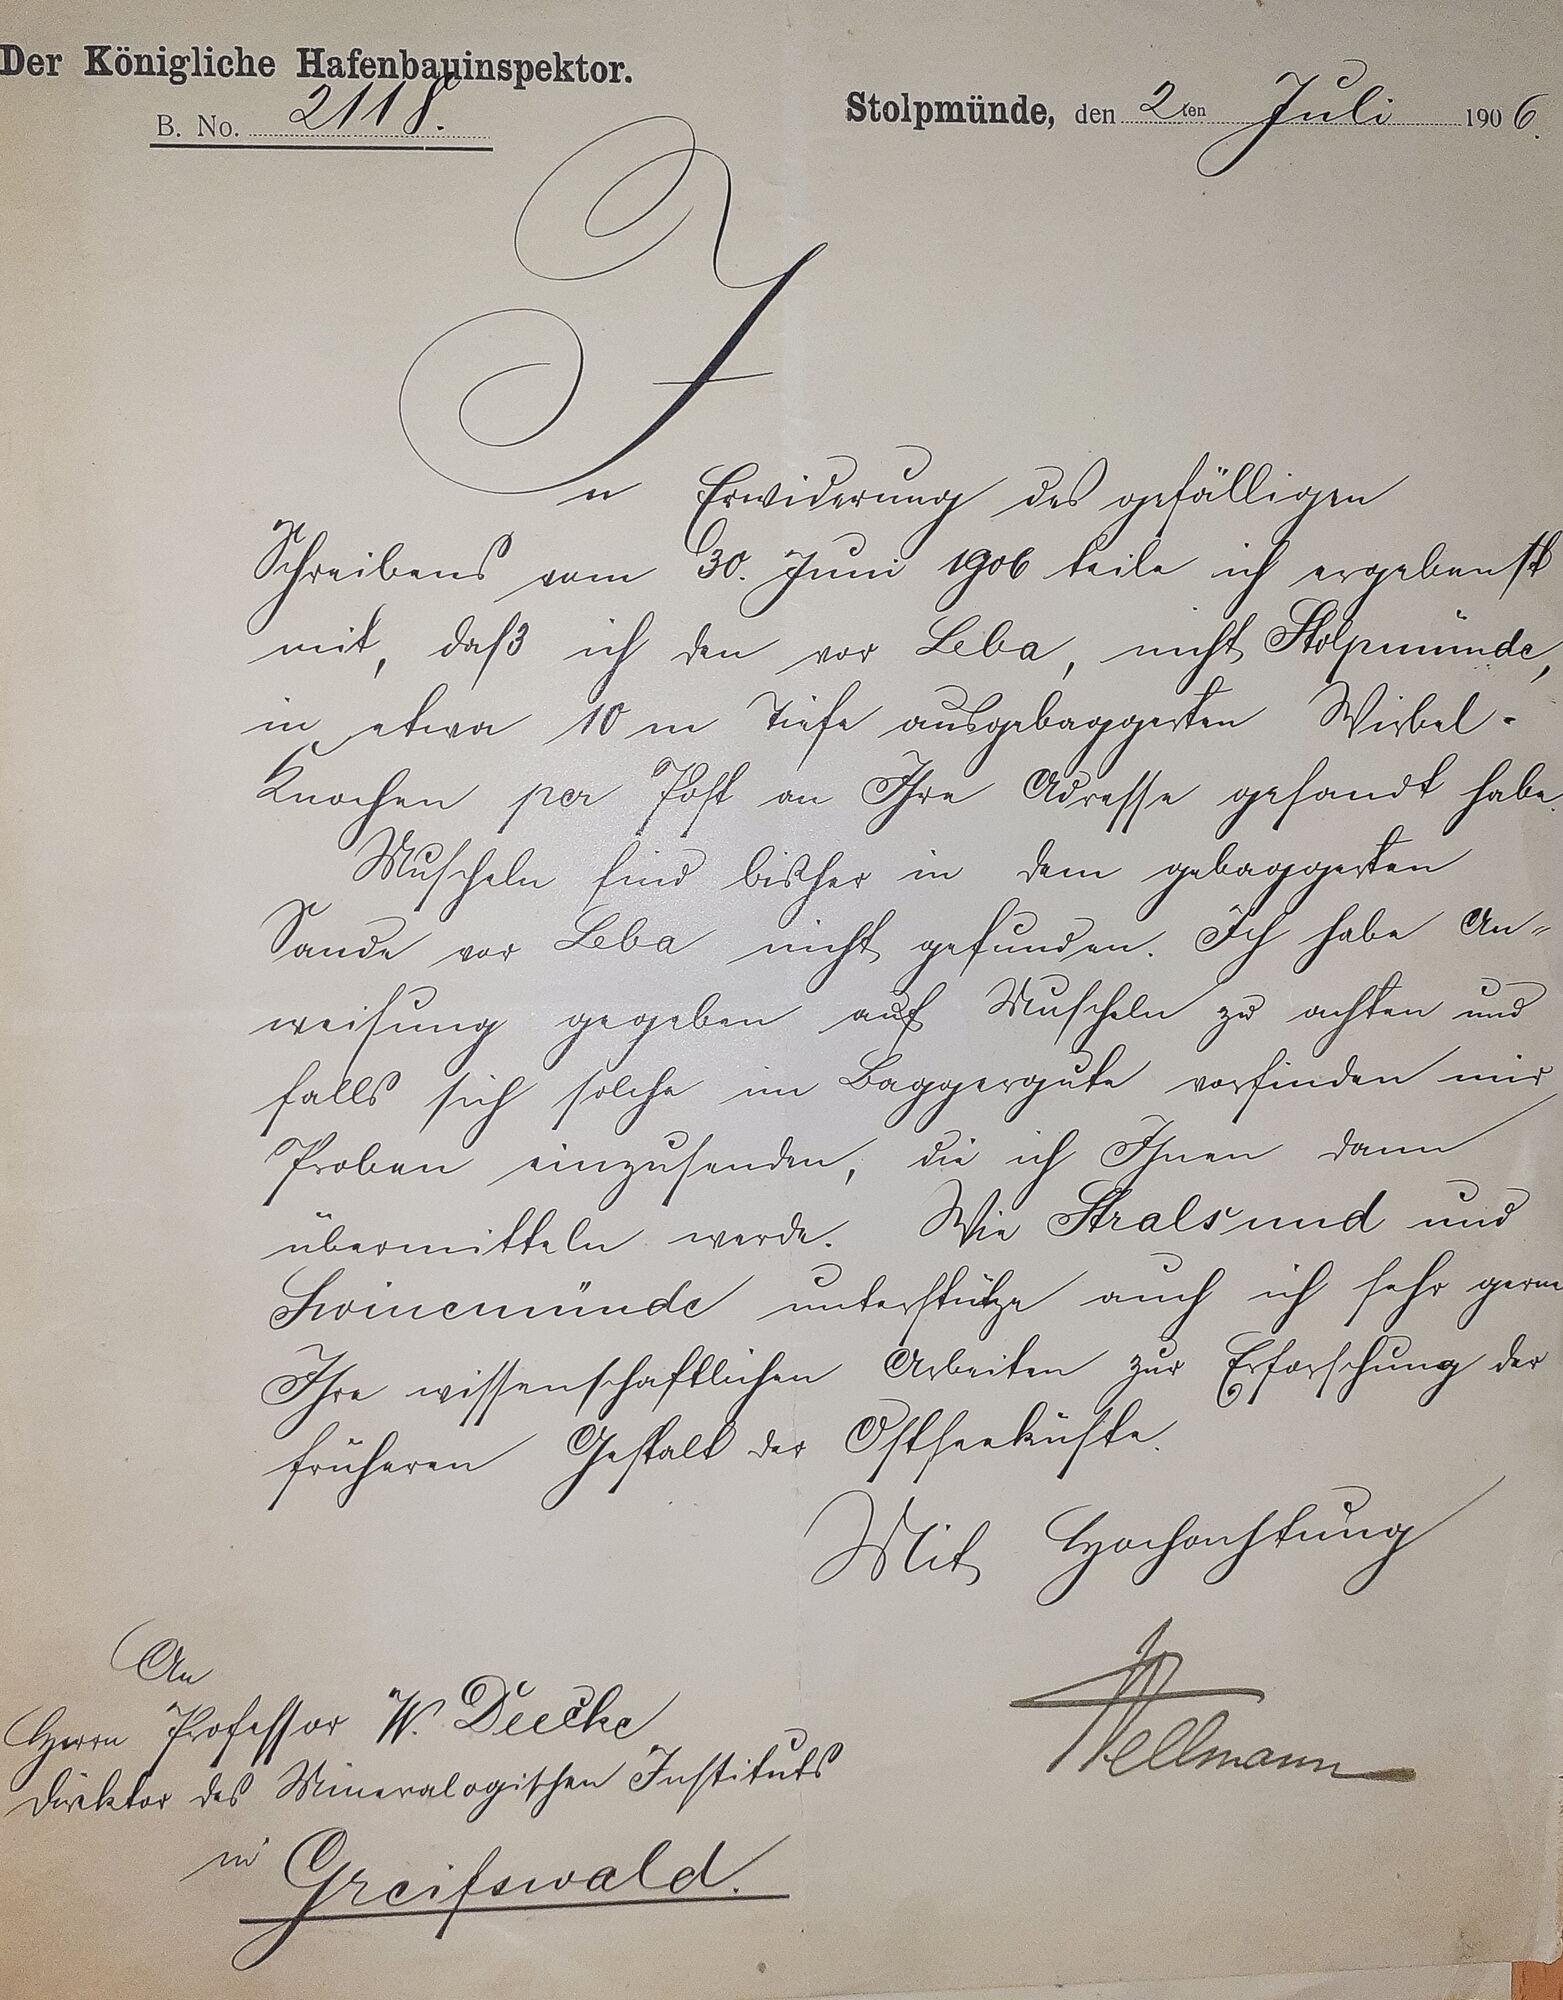 Der Königliche Hafenbauinspektor.
B. No. 2118.
Stolpmünde, den 2ten Juli 1906.
In Erwiderung des gefälligen
Schreibens vom 30. Juni 1906 teile ich ergebenst
mit, daß ich den vor Leba, nicht Stolpmünde,
in etwa 10 m Tiefe ausgebaggerten Wirbel-
Knochen per Post an Ihre Adresse gesandt habe.
Muscheln sind bisher in dem gebaggerten
Sande vor Leba nicht gefunden. Ich habe An-
weisung gegeben auf Muscheln zu achten und
falls sich solche im Baggergute vorfinden mir
Proben einzusenden, die ich Ihnen dann
übermitteln werde. Wie Stralsund und
Swinemünde unterstütze auch ich sehr gerne
Ihre wissenschaftlichen Arbeiten zur Erforschung der
früheren Gestalt der Ostseeküste.
Mit Hochachtung
An
Herrn Professor W. Deecke
Direktor des Mineralogischen Instituts
in Greifswald.